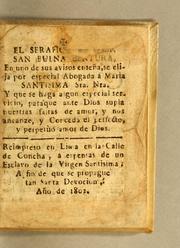 ✠
EL SERAFIC
SAN BUENA VENTURA,
En uno de sus avisos enseña, se eli-
ja por especial Abogada à Maria
SANTISIMA Sra. Nra.
Y que se haga algun especial ser-
vicio, paraque ante Dios supla
nuestras faltas de amor, y nos
alcance, y Conceda el perfecto,
y perpetuo amor de Dios.
Reimpreso en Lima en la Calle
de Concha, a expensas de un
Esclavo de la Virgen Santisima;
A fin de que se propague
tan Santa Devocion,
Año de 1801.